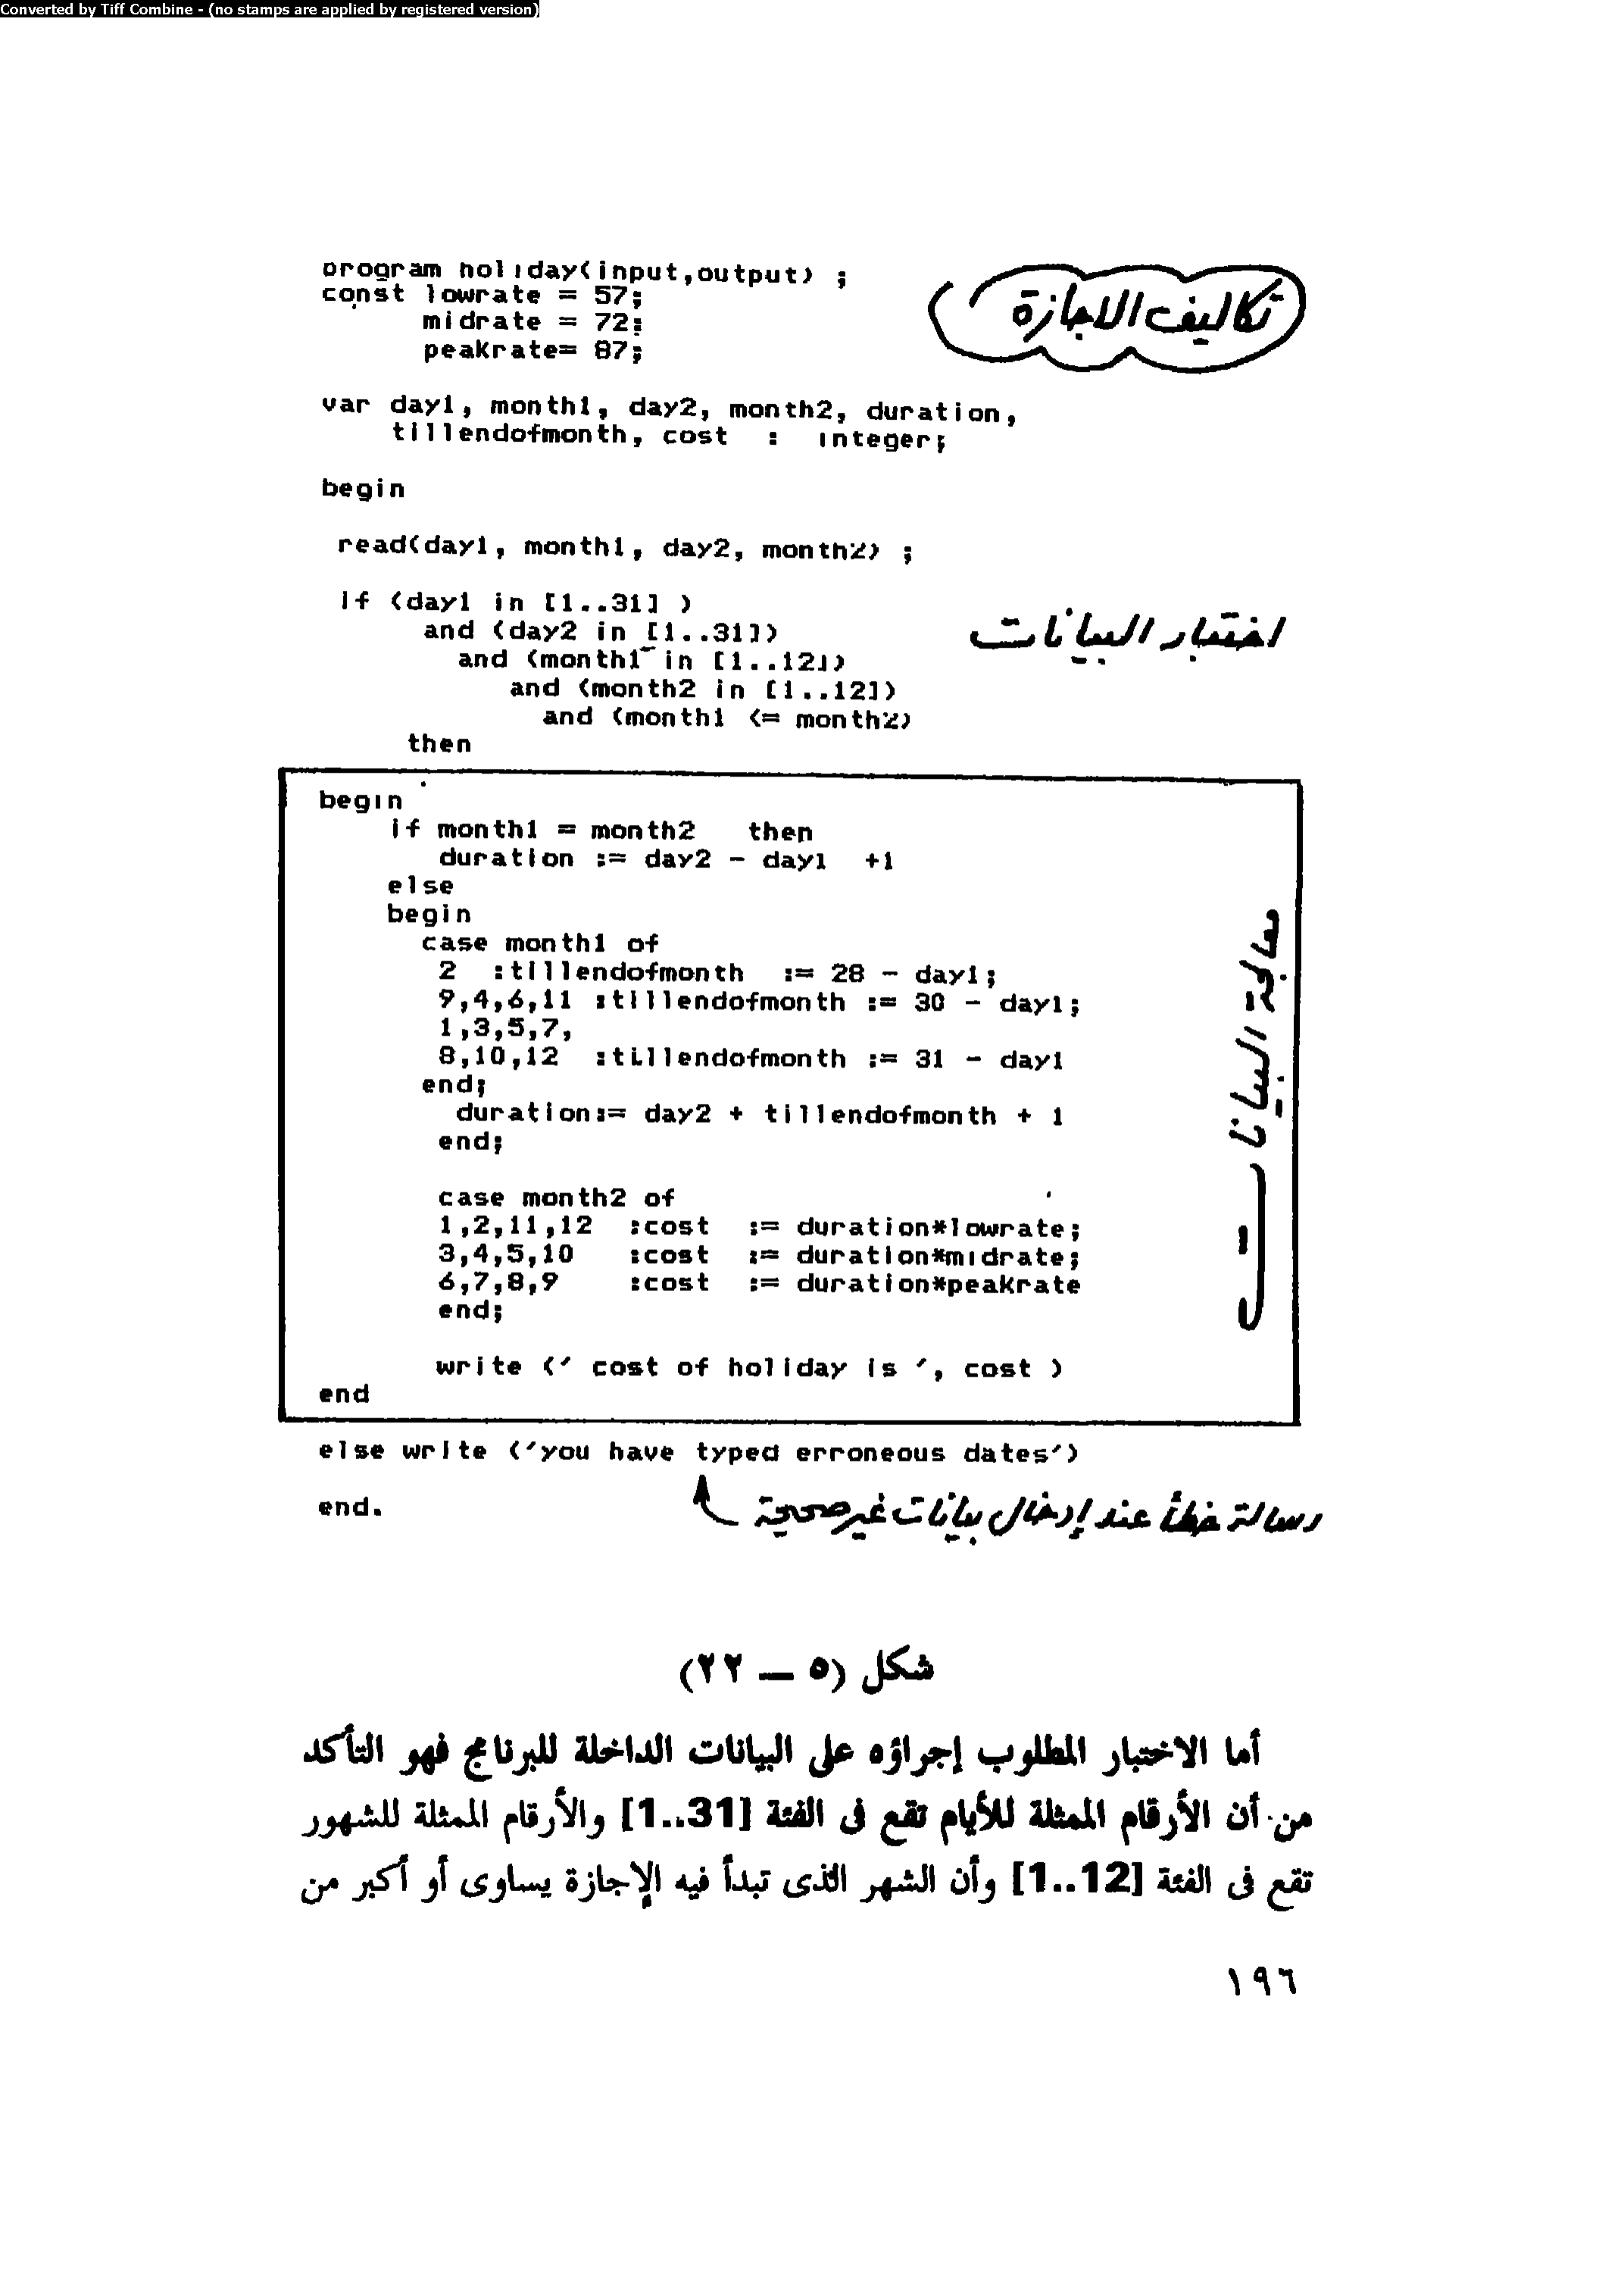 Converted by Tiff Combine - (no stamps are applied by registered version)
program holiday(input,output) ;
const lowrate = 57;
midrate = 72;
peakrate= 87;
تكاليف الاجازة
var day1, month1, day2, month2, duration,
tillendofmonth, cost : integer;
begin
read(day1, month1, day2, month2) ;
if (day1 in [1..31] )
and (day2 in [1..31])
اختبار البيانات
and (month1 in [1..12])
and (month2 in [1..12])
and (month1 <= month2)
then
begin
if month1 = month2 then
duration := day2 - day1 +1
else
begin
case month1 of
2 :tillendofmonth := 28 - day1;
9,4,6,11 :tillendofmonth := 30 - day1;
1,3,5,7,
8,10,12 :tillendofmonth := 31 - day1
end;
duration:= day2 + tillendofmonth + 1
end;
معالجة البيانات
case month2 of
1,2,11,12 :cost := duration*lowrate;
3,4,5,10 :cost := duration*midrate;
6,7,8,9 :cost := duration*peakrate
end;
write (' cost of holiday is ', cost )
end
else write ('you have typed erroneous dates')
end.
رسالة خطأ عند إدخال بيانات غير صحيحة
شكل (٥ — ٢٢)
أما الاختبار المطلوب إجراؤه على البيانات الداخلة للبرنامج فهو التأكد
من أن الأرقام الممثلة للأيام تقع فى الفئة [1..31] والأرقام الممثلة للشهور
تقع فى الفئة [1..12] وأن الشهر الذى تبدأ فيه الإجازة يساوى أو أكبر من
١٩٦